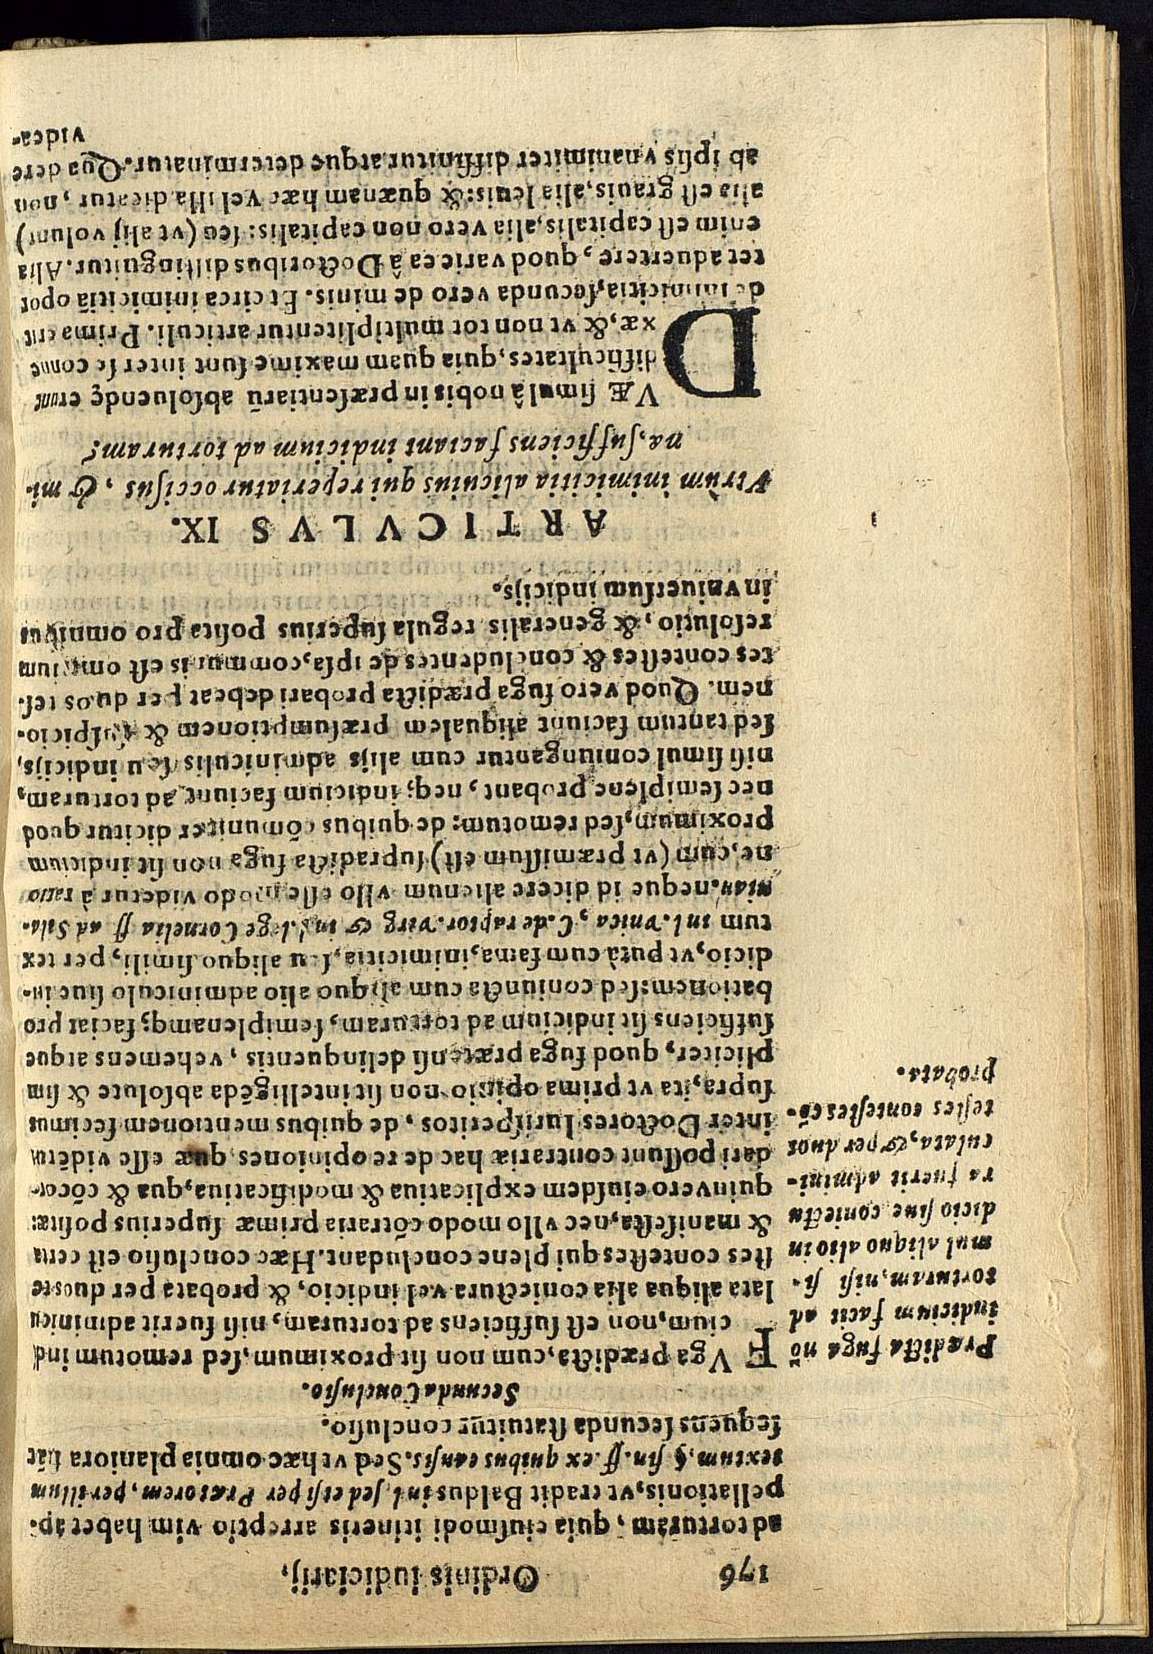 176 Ordinis iudiciarij,
ad torturam, quia eiusmodi itineris arreptio vim habet ap-
pellationis, vt tradit Baldus in l. sed etsi per Prætorem, per illum
textum, §. fin. ff. ex quibus causis. Sed vt hæc omnia planiora fiāt
sequens secunda statuitur conclusio.
Secunda Conclusio.
FVga prædicta, cum non sit proximum, sed remotum ind
cium, non est sufficiens ad torturam, nisi fuerit adminicu
lata aliqua alia coniectura vel indicio, & probata per duos te
stes contestes qui plene concludant. Hæc conclusio est certa
& manifesta, nec vllo modo cōtraria primæ superius positæ:
quin vero eiusdem explicatiua & modificatiua, qua & cōcor-
dari possunt contrariæ hac de re opiniones quæ esse vidētur
inter Doctores Iurisperitos, de quibus mentionem fecimus
supra, ita vt prima opinio non sit intelligēda absolute & sim
pliciter, quod fuga prætensi delinquentis, vehemens atque
sufficiens sit indicium ad torturam, semiplenamq; faciat pro
bationem: sed coniuncta cum aliquo alio adminiculo siue in-
dicio, vt putà cum fama, inimicitia, seu aliquo simili, per tex
tum in l. vnica, C. de raptor. virg & in l. lege Cornelia ff ad Sila-
nian. neque id dicere alienum vllo esse modo videtur à ratio
ne, cum (vt præmissum est) supradicta fuga non sit indicium
proximum, sed remotum: de quibus cōmuniter dicitur quod
nec semiplene probant, neq; indicium faciunt ad torturam,
nisi simul coniungantur cum alijs adminiculis seu indicijs,
sed tantum faciunt aliqualem præsumptionem & suspicio-
nem. Quod vero fuga prædicta probari debeat per duos tes-
tes contestes & concludentes de ipsa, communis est omnium
resolutio, & generalis regula superius posita pro omnibus
in vniuersum indicijs.
Prædicta fuga nō
indicium facit ad
torturam, nisi si-
mul aliquo alio in
dicio siue coniectu
ra fuerit admini-
culata, & per duos
testes contestes cō-
probata.
ARTICVLVS IX.
Vtrùm inimicitia alicuius qui reperiatur occisus, & mi-
na, sufficiens faciant indicium ad torturam?
DVÆ simul à nobis in præsentiarū absoluendę erunt
difficultates, quia quam maxime sunt inter se conne
xæ, & vt non tot multiplicentur articuli. Prima erit
de inimicitia, secunda vero de minis. Et circa inimicitiā opor
tet aduertere, quod varie ea à Doctoribus distinguitur. Alia
enim est capitalis, alia vero non capitalis: seu (vt alij volunt)
alia est grauis, alia leuis: & quænam hæc vel illa dicatur, non
ab ipsis vnanimiter diffinitur atque determinatur. Qua de re
videa-